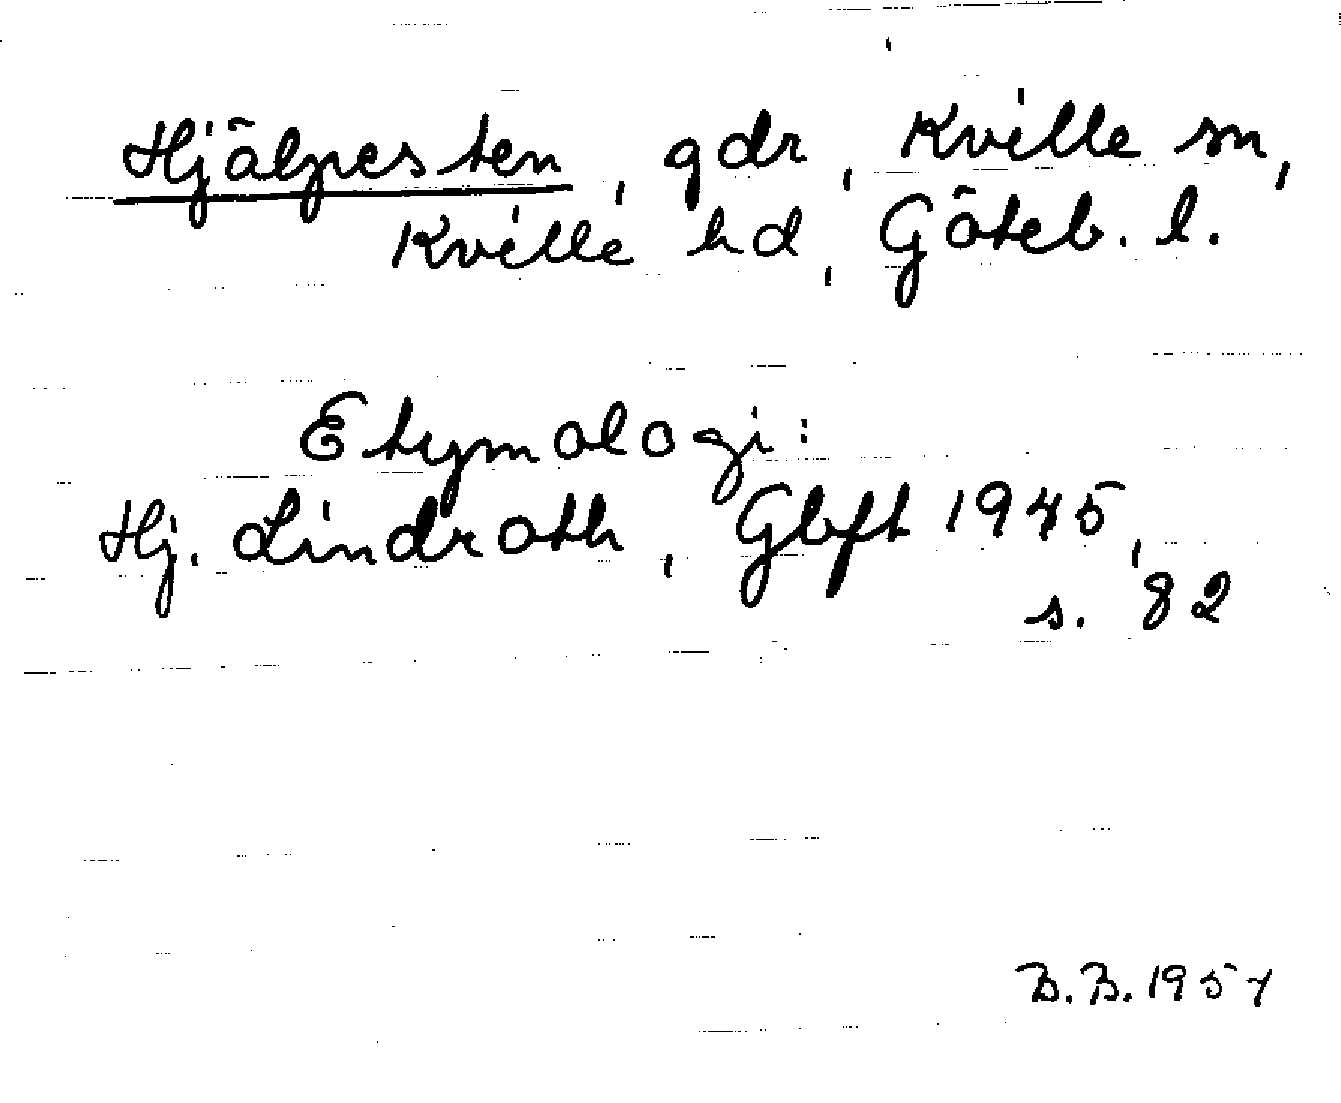 Hjälpesten, gdr, Kville sn,
Kville hd, Göteb. l.
Etymologi:
Hj. Lindroth, Gbft 1945,
s. 82
B.B. 1957